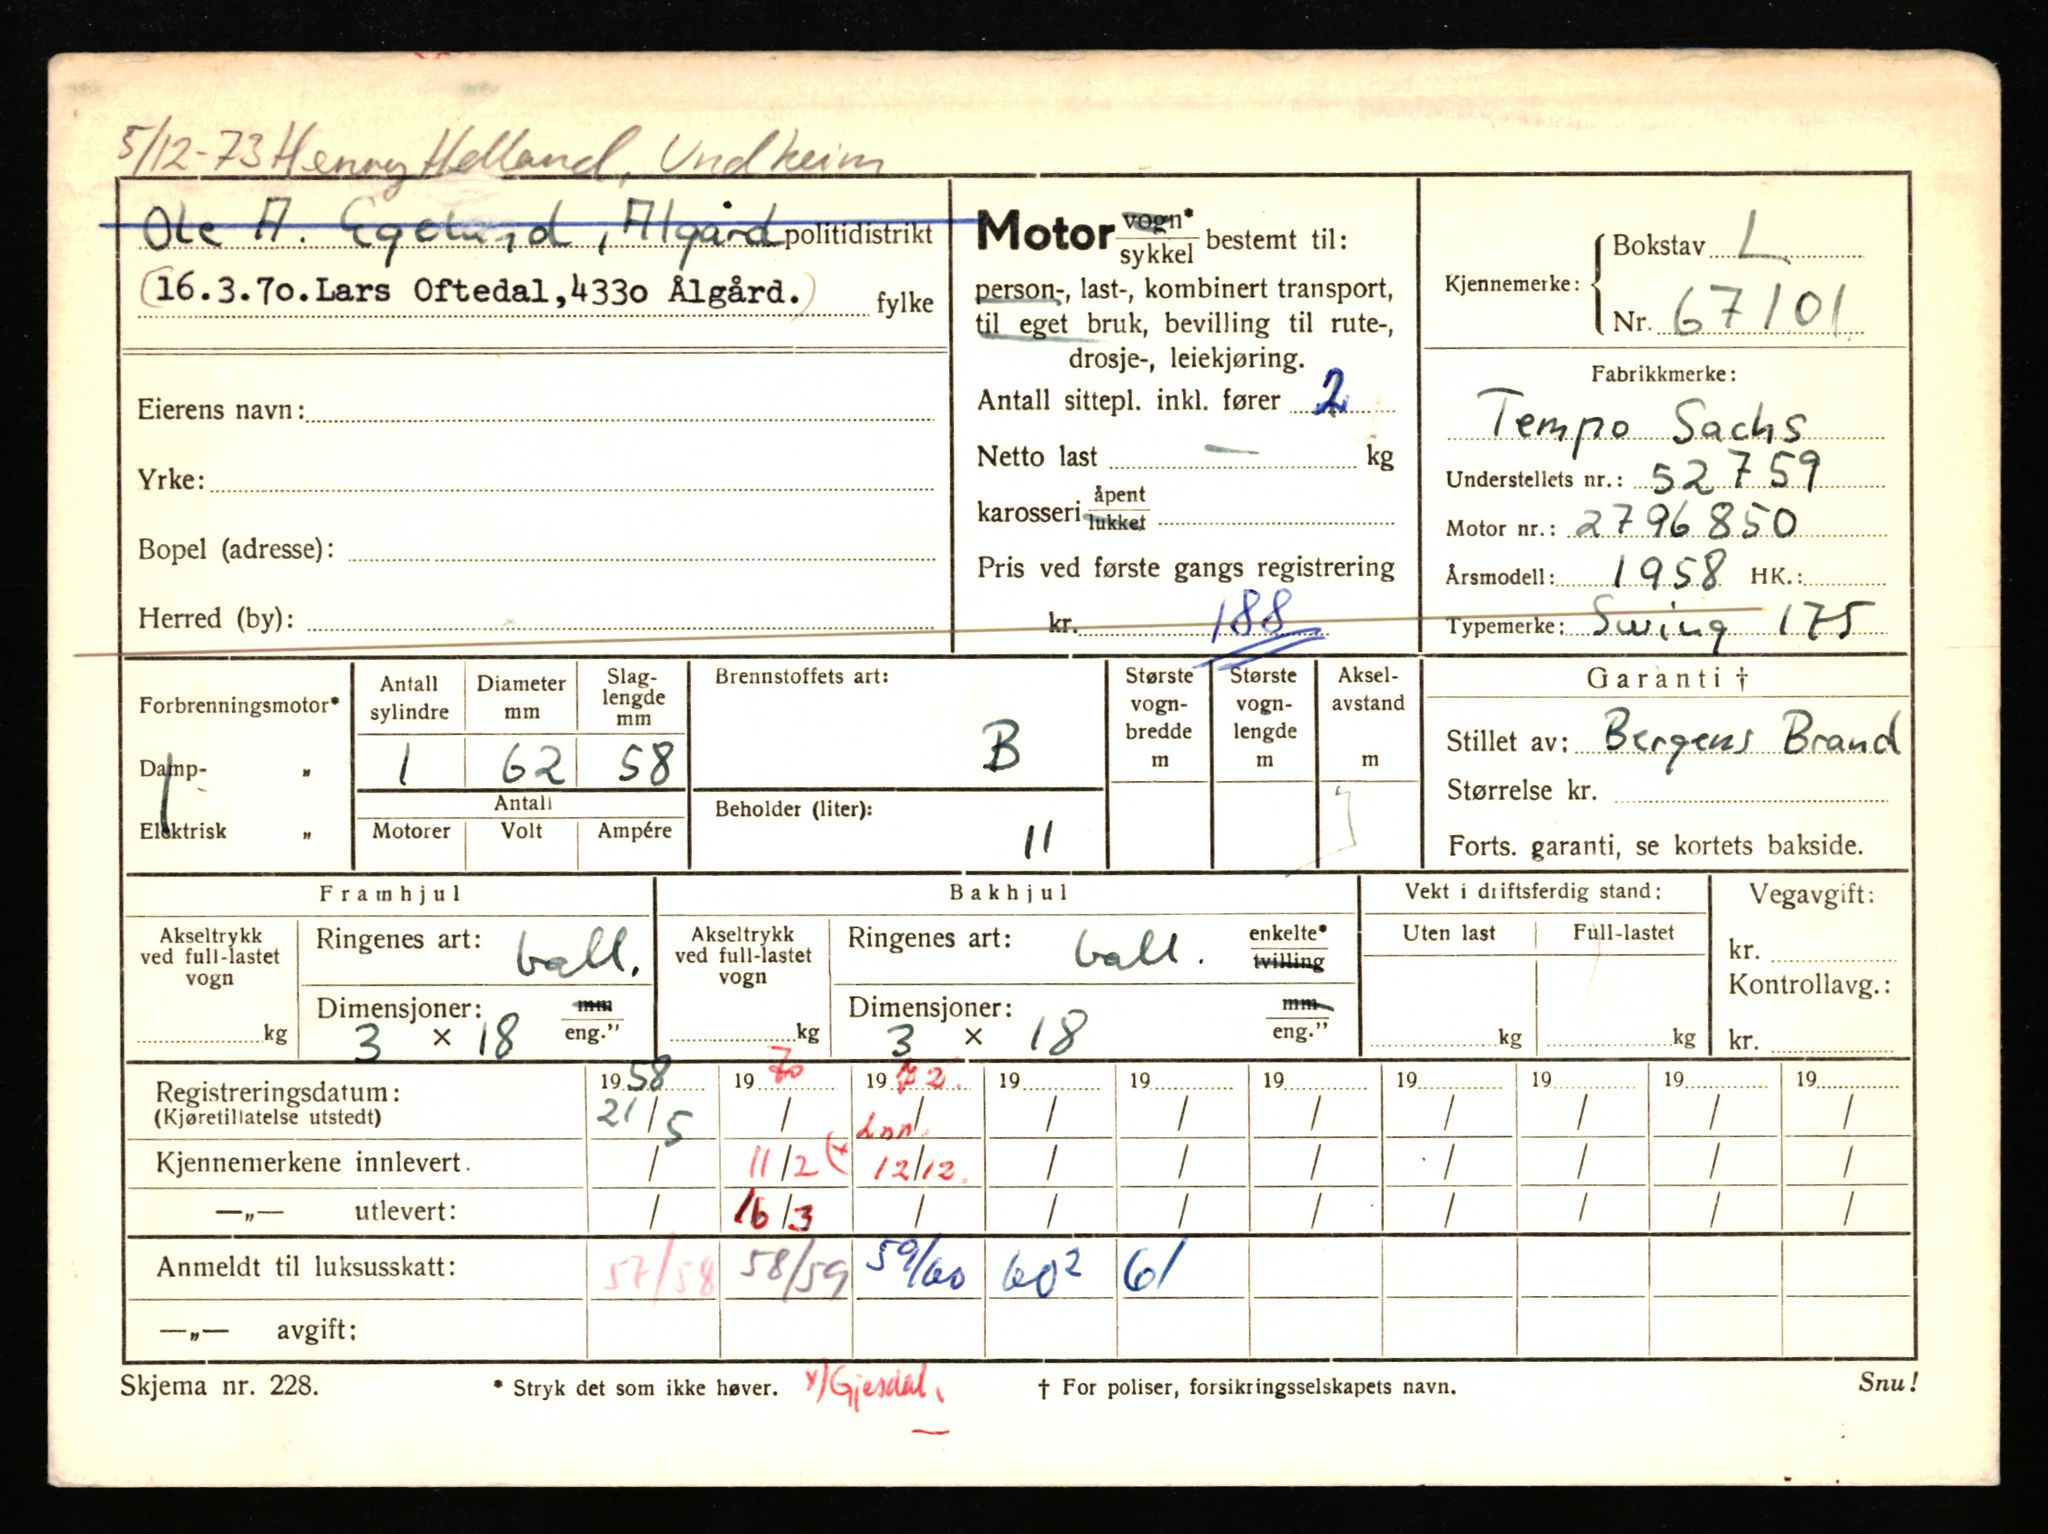 5/12-73 Henry Helland, Undheim
Ole A. Egelund, Ålgård politidistrikt
(16.3.70. Lars Oftedal, 4330 Ålgård.) fylke
Eierens navn:
Yrke:
Bopel (adresse):
Herred (by):
Motor vogn* / sykkel bestemt til:
person-, last-, kombinert transport,
til eget bruk, bevilling til rute-,
drosje-, leiekjøring.
Antall sittepl. inkl. fører 2
Netto last — kg
karosseri åpent / lukket
Pris ved første gangs registrering
kr. 188
Kjennemerke: Bokstav L
Nr. 67101
Fabrikkmerke:
Tempo Sachs
Understellets nr.: 52759
Motor nr.: 2796850
Årsmodell: 1958 HK.:
Typemerke: Swing 175
Forbrenningsmotor*
Damp- „
Elektrisk „
Antall sylindre 1
Diameter mm 62
Slag-lengde mm 58
Antall
Motorer Volt Ampére
Brennstoffets art:
B
Beholder (liter):
11
Største vogn-bredde m
Største vogn-lengde m
Aksel-avstand m
Garanti †
Stillet av: Bergens Brand
Størrelse kr.
Forts. garanti, se kortets bakside.
Framhjul
Akseltrykk ved full-lastet vogn kg
Ringenes art: ball.
Dimensjoner: mm / eng.”
3 × 18
Bakhjul
Akseltrykk ved full-lastet vogn kg
Ringenes art: ball. enkelte* / tvilling
Dimensjoner: mm / eng.”
3 × 18
Vekt i driftsferdig stand:
Uten last Full-lastet
kg kg
Vegavgift:
kr.
Kontrollavg.:
kr.
Registreringsdatum: 1958 1970 1972. 19 19 19 19 19 19 19
(Kjøretillatelse utstedt) 21/5 / / / / / / / / /
Inn.
Kjennemerkene innlevert. / 11/2 (x 12/12. / / / / / / /
—„— utlevert: / 16/3 / / / / / / / /
Anmeldt til luksusskatt: 57/58 58/59 59/60 60² 61
—„— avgift:
Skjema nr. 228. * Stryk det som ikke høver. x) Gjesdal. † For poliser, forsikringsselskapets navn. Snu!